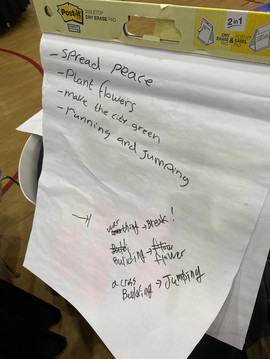 Post-it
TABLETOP
DRY ERASE PAD
2 in 1
DRY ERASE & EASEL PAD
- spread peace
- Plant flowers
- make the city green
- running and jumping
→ break!
Building → flower
a cross
Building → Jumping